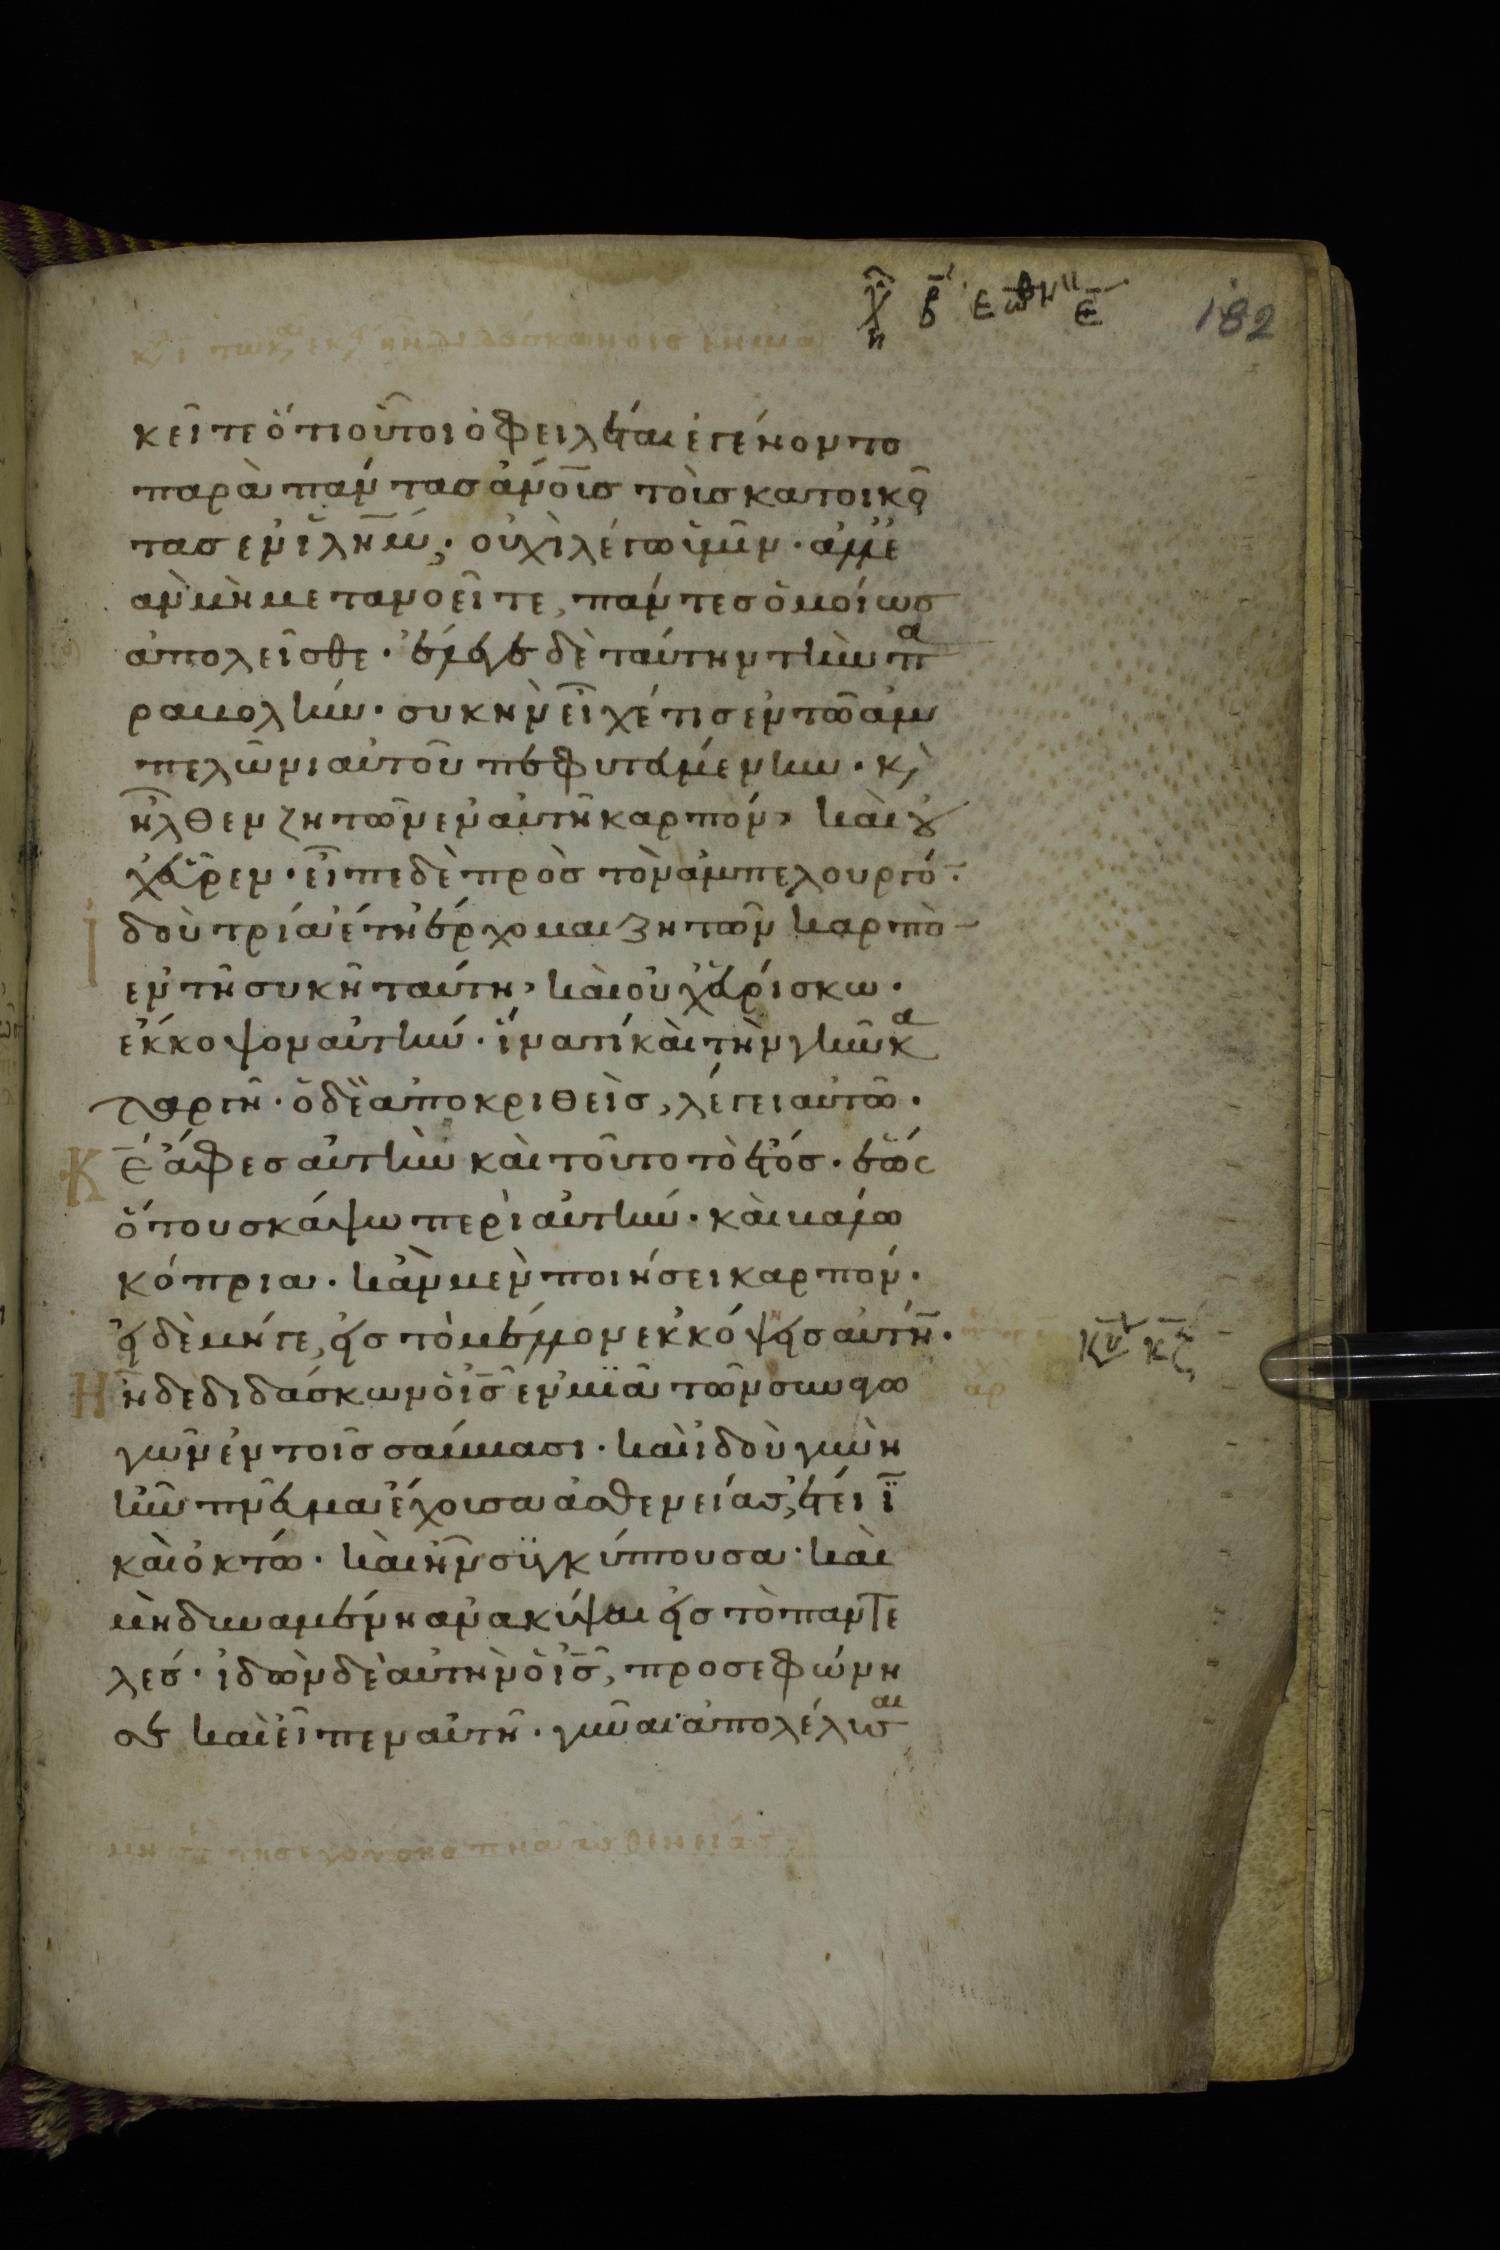 182
κεῖτε ὅτι οὗτοι ὀφειλέται ἐγένοντο
παρὰ πάντας ἀνο̅ι̅ς τοὺς κατοικοῦ
τας ἐν ἰ̅λ̅η̅μ̅· οὐχὶ λέγω ὑμῖν· ἀλλ' ἐ
ὰν μὴ μετανοεῖτε, πάντες ὁμοίως
ἀπολεῖσθε· ἔλεγε δὲ ταύτην τὴν πα
ραβολήν· συκὴν εἶχέ τις ἐν τῶ ἀμ
πελῶνι αὐτοῦ πεφυτευμένην· κ̀
ἦλθεν ζητῶν ἐν αὐτῆ καρπὸν, καὶ οὐ
χ εὗρεν· εἶπε δὲ πρὸς τὸν ἀμπελουργό̅·
Ἰδοὺ τρία ἔτη ἔρχομαι ζητῶν καρπὸ̅
ἐν τῆ συκῆ ταύτη, καὶ οὐχ εὑρίσκω·
ἔκκοψον αὐτήν· ἵνα τί καὶ τὴν γῆν κα
ταργῆ· ὁ δὲ ἀποκριθεὶς, λέγει αὐτῶ·
Κ̅ε̅ ἄφες αὐτὴν καὶ τοῦτο τὸ ἔτος· ἕως
ὅτου σκάψω περὶ αὐτήν· καὶ βάλω
κόπρια· κἂν μὲν ποιήσει καρπόν·
εἰ δὲ μήγε, εἰς τὸ μέλλον ἐκκόψεις αὐτήν·
Ἦν δὲ διδάσκων ὁ ι̅ς̅ ἐν μιᾶ τῶν συναγω
γῶν ἐν τοῖς σάββασι· καὶ ἰδοὺ γυνὴ
ἦν π̅ν̅α̅ ἔχουσα ἀσθενείας, ἔτει ι̅
καὶ ὀκτώ· καὶ ἦν συγκύπτουσα· καὶ
μὴ δυναμένη ἀνακύψαι εἰς τὸ παντε
λές· ἰδὼν δὲ αὐτὴν ὁ ι̅ς̅, προσεφώνη
σε καὶ εἶπεν αὐτῆ· γύναι ἀπολέλυσαι